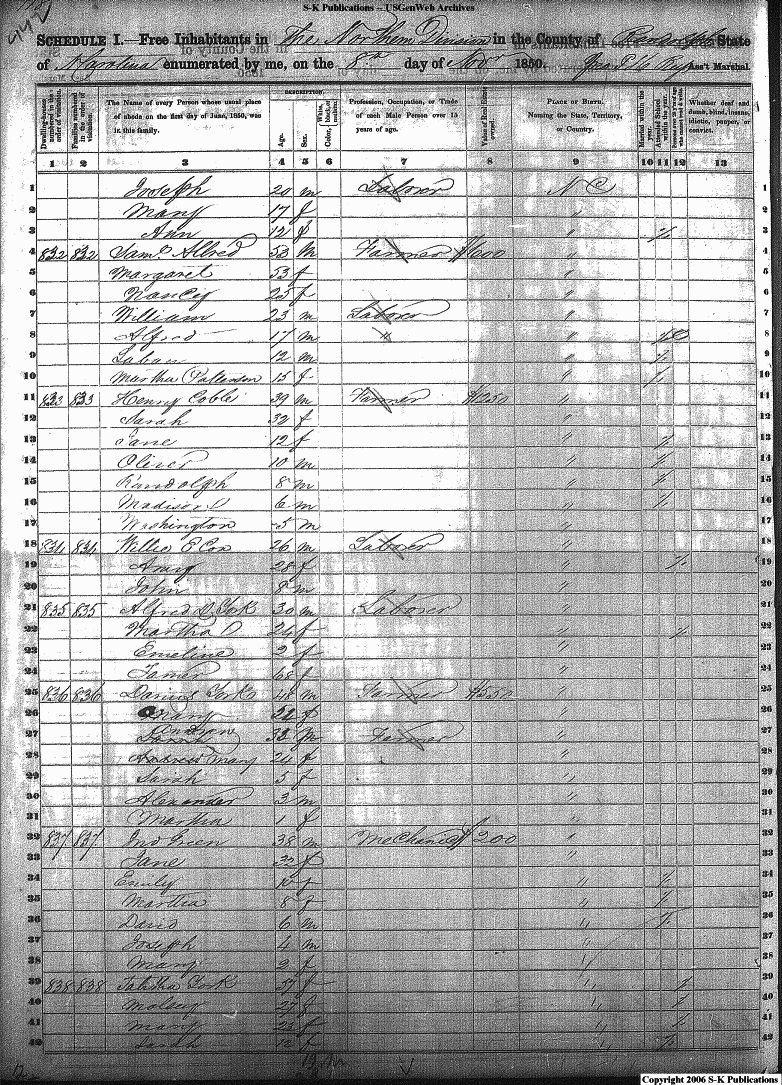 S-K Publications -- USGenWeb Archives
SCHEDULE I.—Free Inhabitants in The Northern Division in the County of Randolph State
of N Carolina enumerated by me, on the 8th day of Nov 1850. Ass't Marshal.
DESCRIPTION.
Dwelling-houses numbered in the order of visitation.
Families numbered in the order of visitation.
The Name of every Person whose usual place of abode on the first day of June, 1850, was in this family.
Age.
Sex.
White, black, or mulatto.
Color,
Profession, Occupation, or Trade of each Male Person over 15 years of age.
Value of Real Estate owned.
PLACE OF BIRTH.
Naming the State, Territory, or Country.
Married within the year.
Attended School within the year.
Persons over 20 y'rs of age who cannot read & write.
Whether deaf and dumb, blind, insane, idiotic, pauper, or convict.
1 2 3 4 5 6 7 8 9 10 11 12 13
1 Joseph 20 m Laborer N C 1
2 Mary 17 f " 2
3 Ann 12 f " 3
4 832 832 Saml Allred 53 m Farmer $600 " 4
5 Margaret 53 f " 5
6 Nancy 25 f " 6
7 William 23 m Laborer " 7
8 Alfred 17 m " " 8
9 Laban 12 m " 9
10 Martha Patterson 15 f " 10
11 833 833 Henry Coble 39 m Farmer $1250 " 11
12 Sarah 32 f " 12
13 Jane 12 f " 13
14 Oliver 10 m " 14
15 Randolph 8 m " 15
16 Madison 6 m " 16
17 Washington 5 m " 17
18 834 834 Willie E Cox 26 m Laborer " 18
19 28 f " 19
20 John 8 m " 20
21 835 835 Alfred D York 30 m Laborer " 21
22 Martha 24 f " 22
23 Emeline 2 f " 23
24 Tamer 68 f " 24
25 836 836 Darius York 48 m Farmer $550 " 25
26 Mary f " 26
27 Andrew 32 m Farmer " 27
28 Mary 24 f " 28
29 Sarah 5 f " 29
30 Alexander 3 m " 30
31 Martha 1 f " 31
32 837 837 Jno Green 38 m Mechanic $200 " 32
33 Jane 32 f " 33
34 Emily 10 f " 34
35 Martha 8 f " 35
36 David 6 m " 36
37 Joseph 4 m " 37
38 Mary 2 f " 38
39 838 838 Tabitha York 57 f " 39
40 27 f " 40
41 Mary 23 f " 41
42 Sarah 12 f " 42
Copyright 2006 S-K Publications